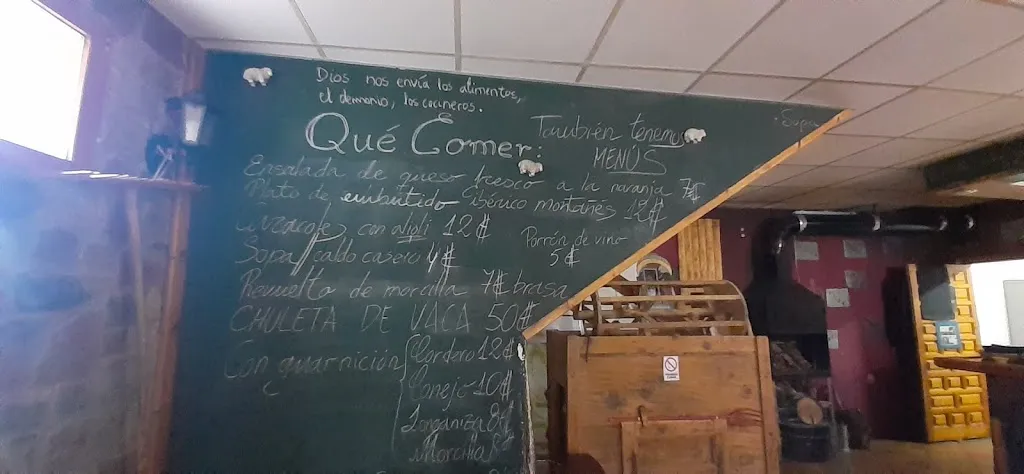 Dios nos envía los alimentos,
el demonio, los cocineros.
Qué Comer:
También tenemo
MENÚS
Ensalada de queso fresco a la naranja 7€
Plato de embutido ibérico montañés 12€
con alioli 12€
Porrón de vino
5€
Sopa/caldo casero 4€
Revuelto de morcilla 7€ brasa
CHULETA DE VACA 50€
Con guarnición
Cordero 12€
Conejo 10€
Longaniza
Morcilla